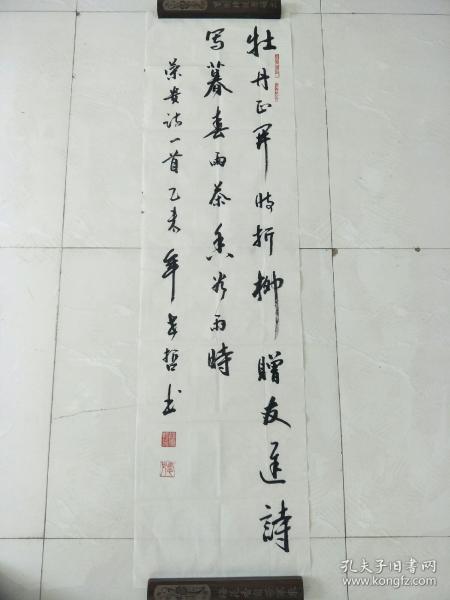 牡丹正开时折柳赠友逢詩
写暮春雨茶香谷雨時
荣贵诗一首乙未年士哲书
孔夫子旧书网
www.kongfz.com